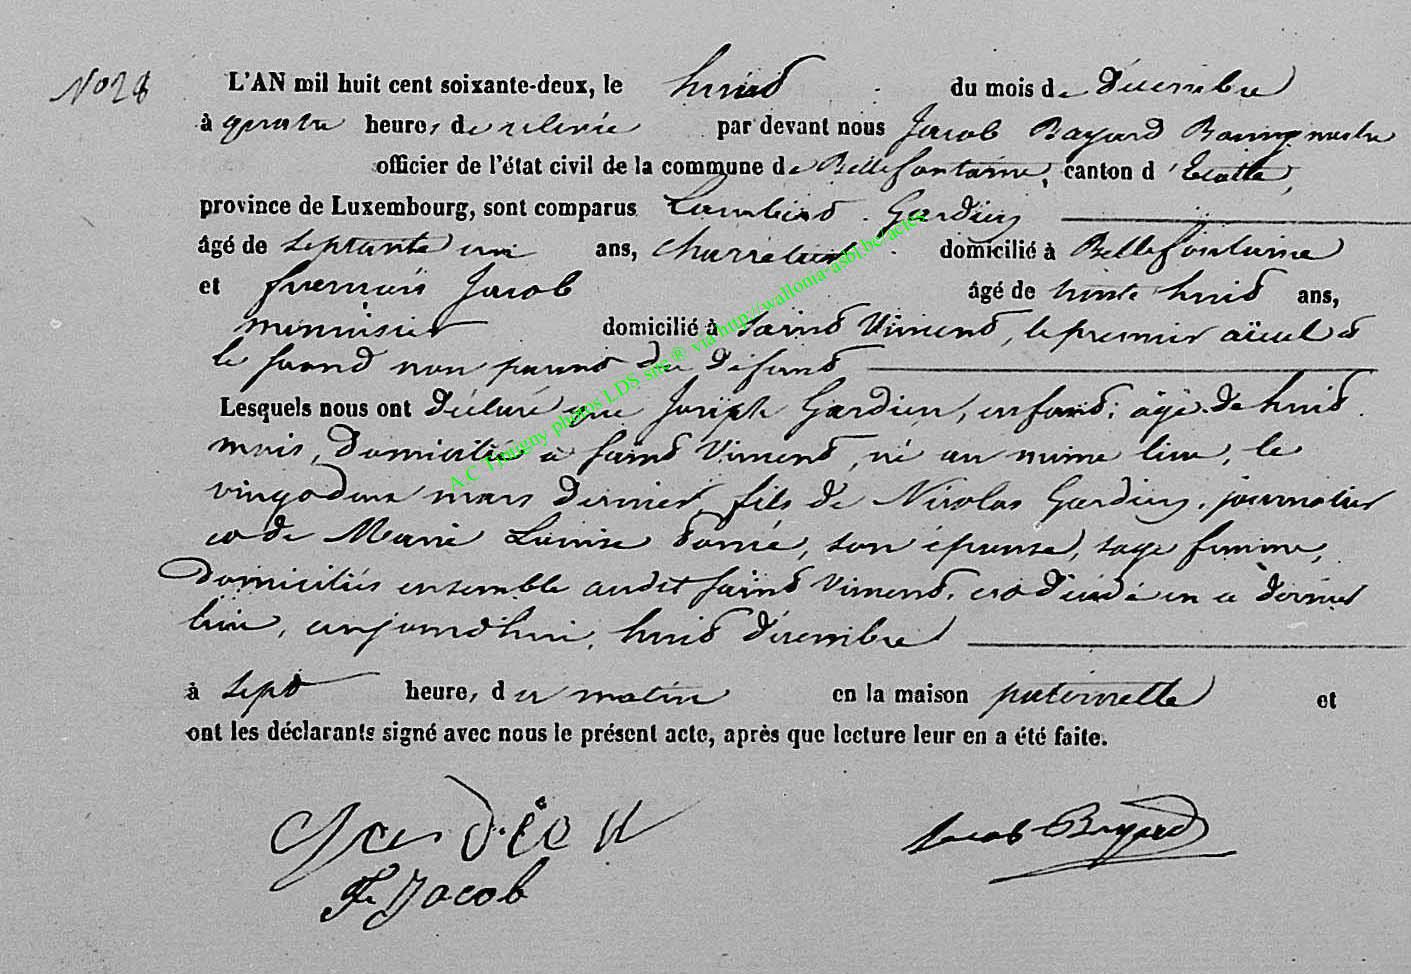 N° 28
L'AN mil huit cent soixante-deux, le huit du mois de décembre
à quatre heures de relevée par devant nous Jacob Bayard Bourgmestre
officier de l'état civil de la commune de Bellefontaine, canton d'Etalle,
province de Luxembourg, sont comparus Lambert Gardien
âgé de septante un ans, charretier domicilié à Bellefontaine
et François Jacob âgé de trente huit ans,
menuisier domicilié à Saint Vincent, le premier aïeul et
le second non parent du défunt
Lesquels nous ont déclaré que Joseph Gardien, enfant, âgé de huit
mois, domicilié à Saint Vincent, né au même lieu, le
vingt deux mars dernier, fils de Nicolas Gardien, journalier
et de Marie Louise, son épouse, sage femme,
domiciliés ensemble audit Saint Vincent, est décédé en ce dernier
lieu, aujourd'hui, huit décembre
à sept heures du matin en la maison paternelle et
ont les déclarants signé avec nous le présent acte, après que lecture leur en a été faite.
Gardien Jacob Bayard
Fs Jacob
A.C Tintigny photos LDS snc ® via http://wallonia-asbl.be/actes